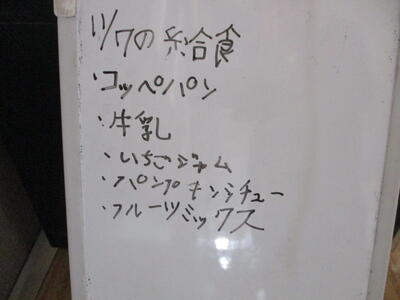 11/7の給食
・コッペパン
・牛乳
・いちごジャム
・パンプキンシチュー
・フルーツミックス